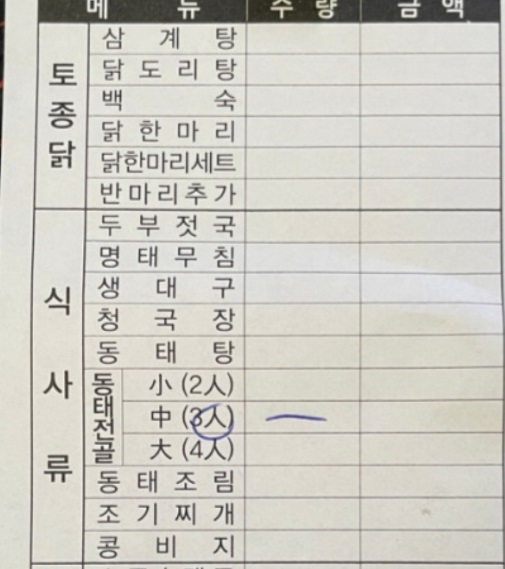 메 뉴 수 량 금 액
토종닭
삼 계 탕
닭 도 리 탕
백 숙
닭 한 마 리
닭한마리세트
반 마 리 추 가
식 사 류
두 부 젓 국
명 태 무 침
생 대 구
청 국 장
동 태 탕
동태전골
小 (2人)
中 (3人) 一
大 (4人)
동 태 조 림
조 기 찌 개
콩 비 지